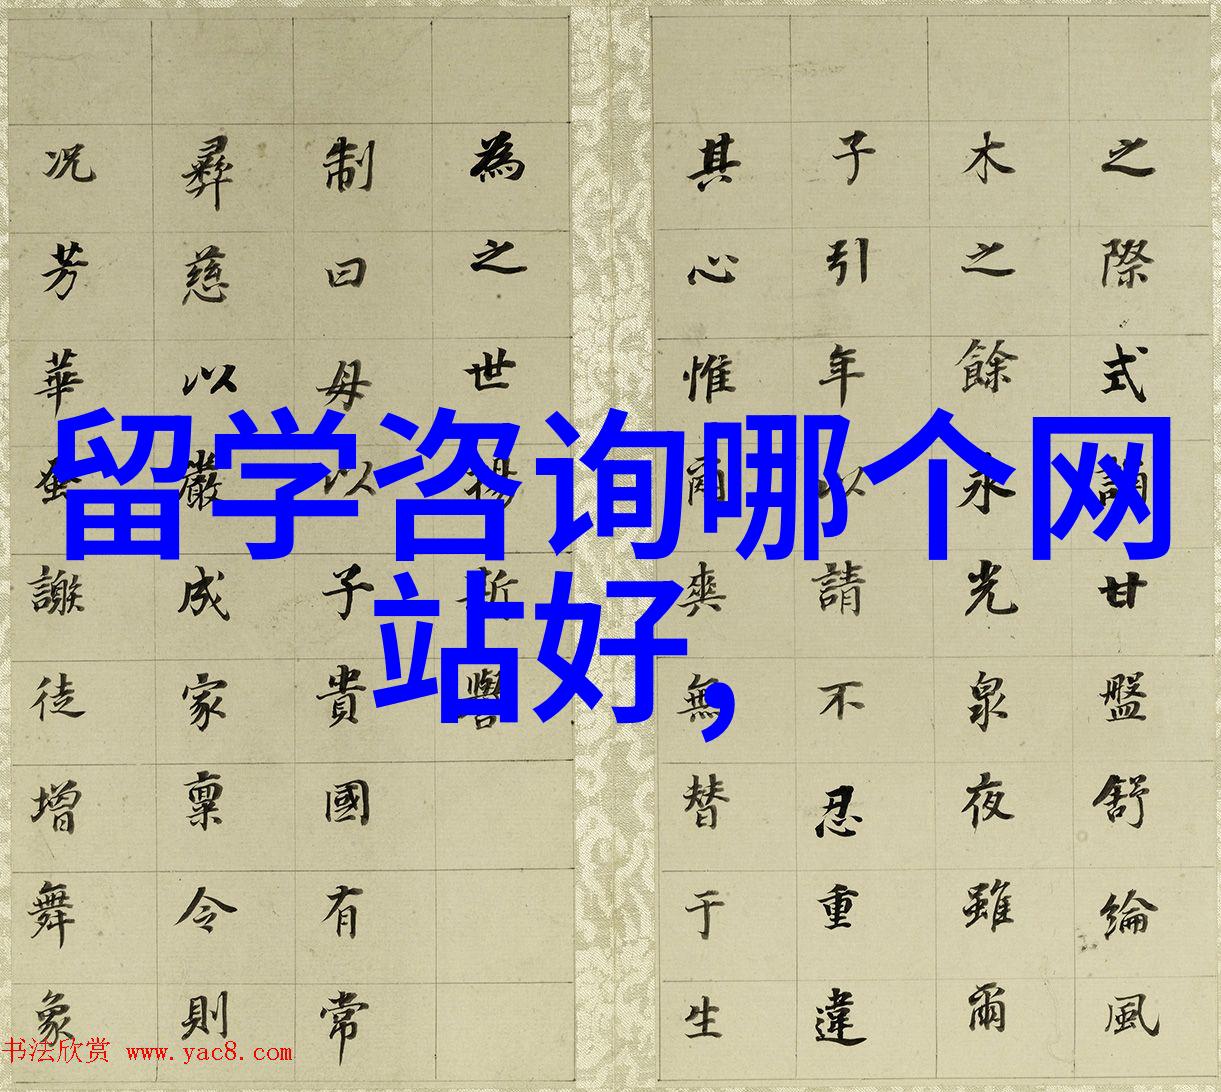 留学咨询哪个网
站好,
之際式甘盤舒綸風
木之餘永光泉夜雖爾
子引年以請不忍重違
其心惟商無替于生
為之世揚
制曰母以子貴國有常
彝慈以嚴成家稟令則
况芳華蚤謝徒增舞象
书法欣赏 www.yac8.com